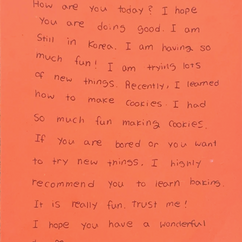 How are you today? I hope
you are doing good. I am
Still in Korea. I am having so
much fun! I am trying lots
of new things. Recently, I learned
how to make cookies. I had
So much fun making cookies.
If you are bored or you want
to try new things, I highly
recommend you to learn baking.
It is really fun. Trust me!
I hope you have a wonderful